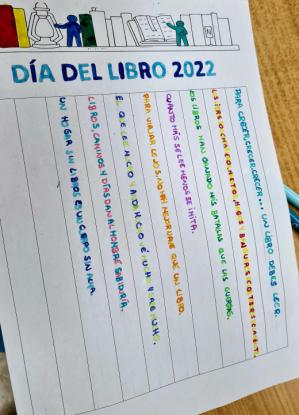 DÍA DEL LIBRO 2022
PARA CRECER, CRECER, CRECER... UN LIBRO DEBES LEER.
LOS LIBROS HAN GANADO MÁS BATALLAS QUE LAS GUERRAS.
CUANTO MÁS SE LEE MENOS SE IMITA.
PARA VIAJAR LEJOS, NO HAY MEJOR NAVE QUE UN LIBRO.
EL QUE LEE MUCHO Y ANDA MUCHO VE MUCHO Y SABE MUCHO.
LIBROS, CAMINOS Y DÍAS DAN AL HOMBRE SABIDURÍA.
UN HOGAR SIN LIBROS ES UN CUERPO SIN ALMA.